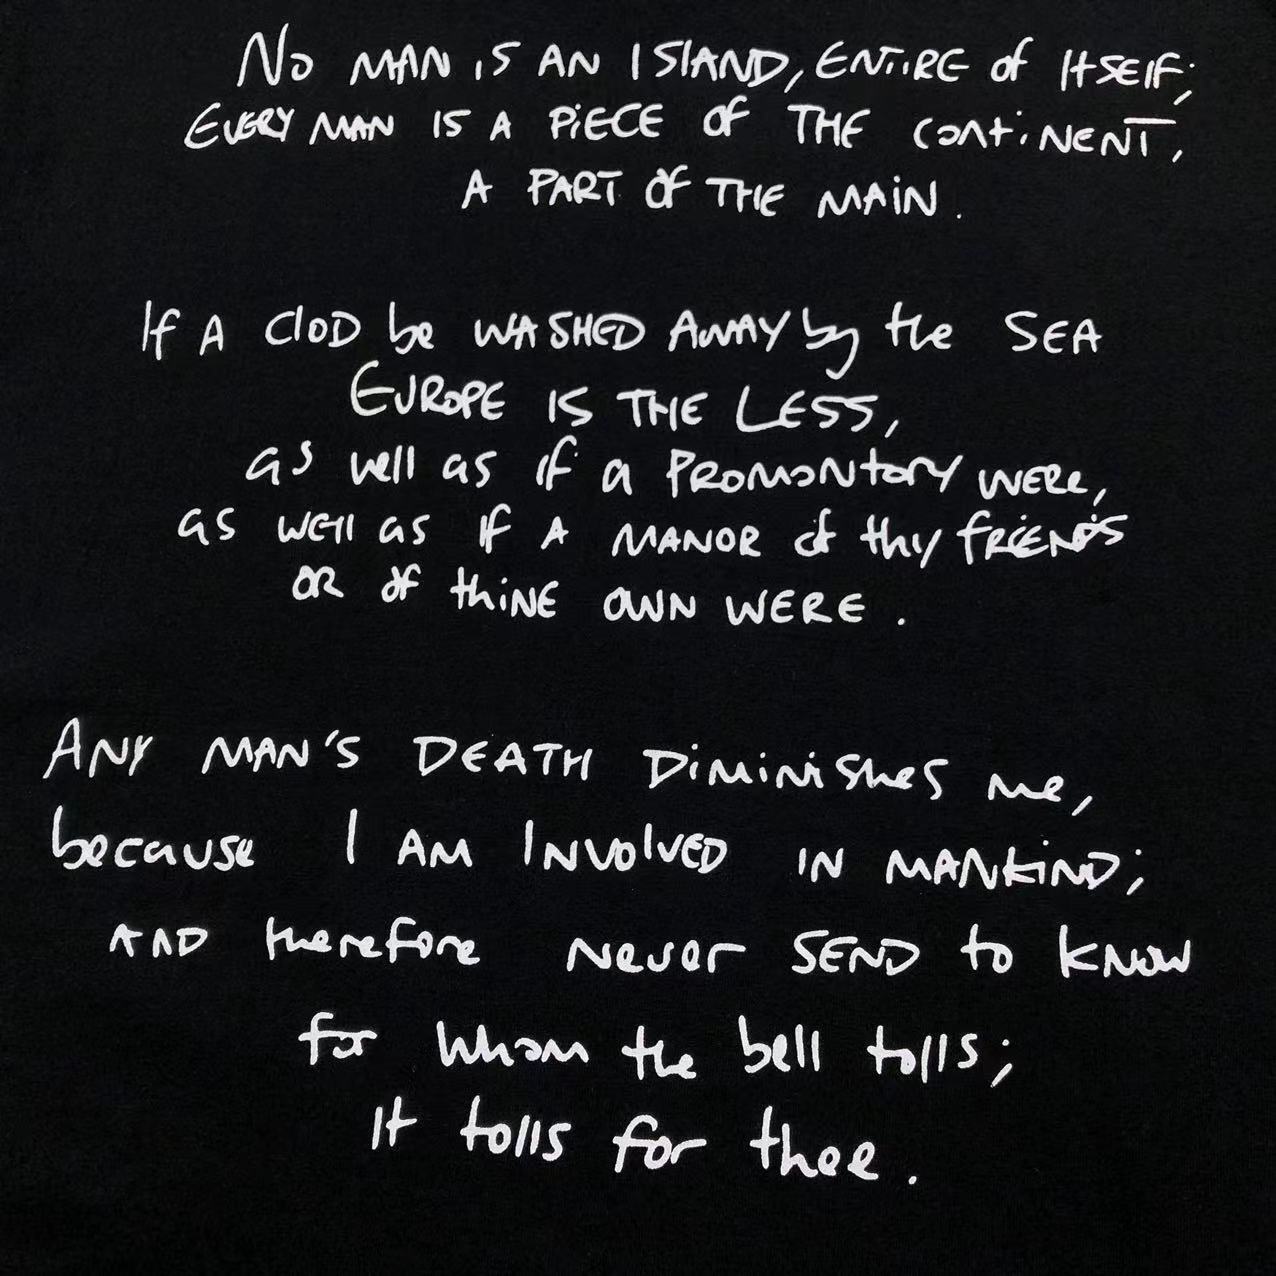 No MAN iS AN ISlAND, ENTiRE of ItSElF;
EVERY MAN IS A PiECE of THE contiNENT,
A PART of THE MAiN.
If A ClOD be WASHED AWAY by the SEA
EUROPE IS THE LESS,
as well as if a PROMONtORY WERE,
as WEll as If A MANOR of thy fRiENDS
OR of thiNE OWN WERE.
ANY MAN'S DEATH DiMiNiSheS me,
because I AM INVOlVED IN MANkiND;
AND therefore never SEND to kNOW
for Whom the bell tolls;
It tolls for thee.